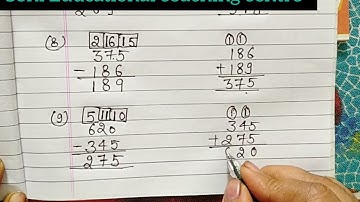 (8) 2 16 15 1 1
375 186
- 186 + 189
189 375
(9) 5 11 10 1 1
620 345
- 345 + 275
275 620